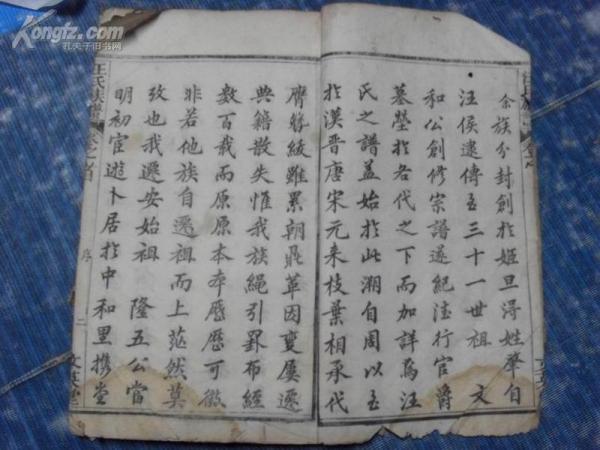 Kongfz.com
孔夫子旧书网
余族分封創於姬旦淂姓肇自
汪侯逮傳至三十一世祖　文
和公創修宗譜遂紀法行官爵
墓塋於各代之下而加詳焉汪
氏之譜蓋始於此溯自周以至
於漢晉唐宋元来枝葉相承代
膺簪綬雖累朝鼎革因變屢遷
典籍散失惟我族繩引罫布經
數百載而原原本本歷歷可徵
非若他族自遷祖而上茫然莫
攷也我遷安始祖　隆五公當
明初宦遊卜居於中和里攜堂
汪氏族譜
卷之首
序
二
文英堂